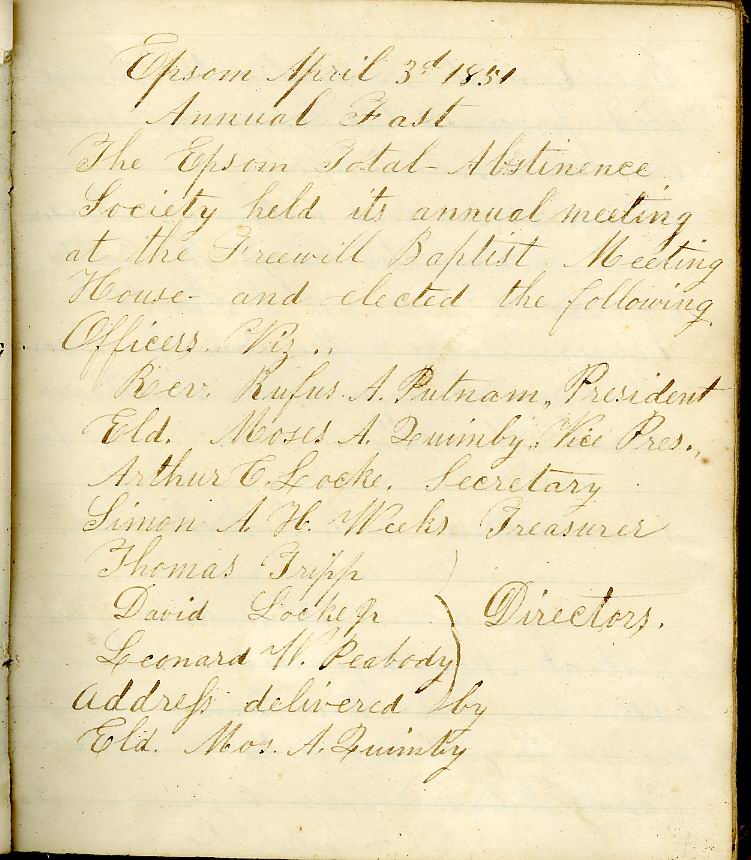 Epsom April 3d 1851
Annual Fast
The Epsom Total-Abstinence
Society held its annual meeting
at the Freewill Baptist Meeting
House and elected the following
Officers. Viz..
Rev. Rufus A. Putnam, President
Eld. Moses A. Quimby, Vice Pres.,
Arthur C. Locke. Secretary
Simon A. H. Weeks Treasurer
Thomas Tripp
David Locke Jr
Directors.
Leonard W. Peabody
Address delivered by
Eld. Mos. A. Quimby